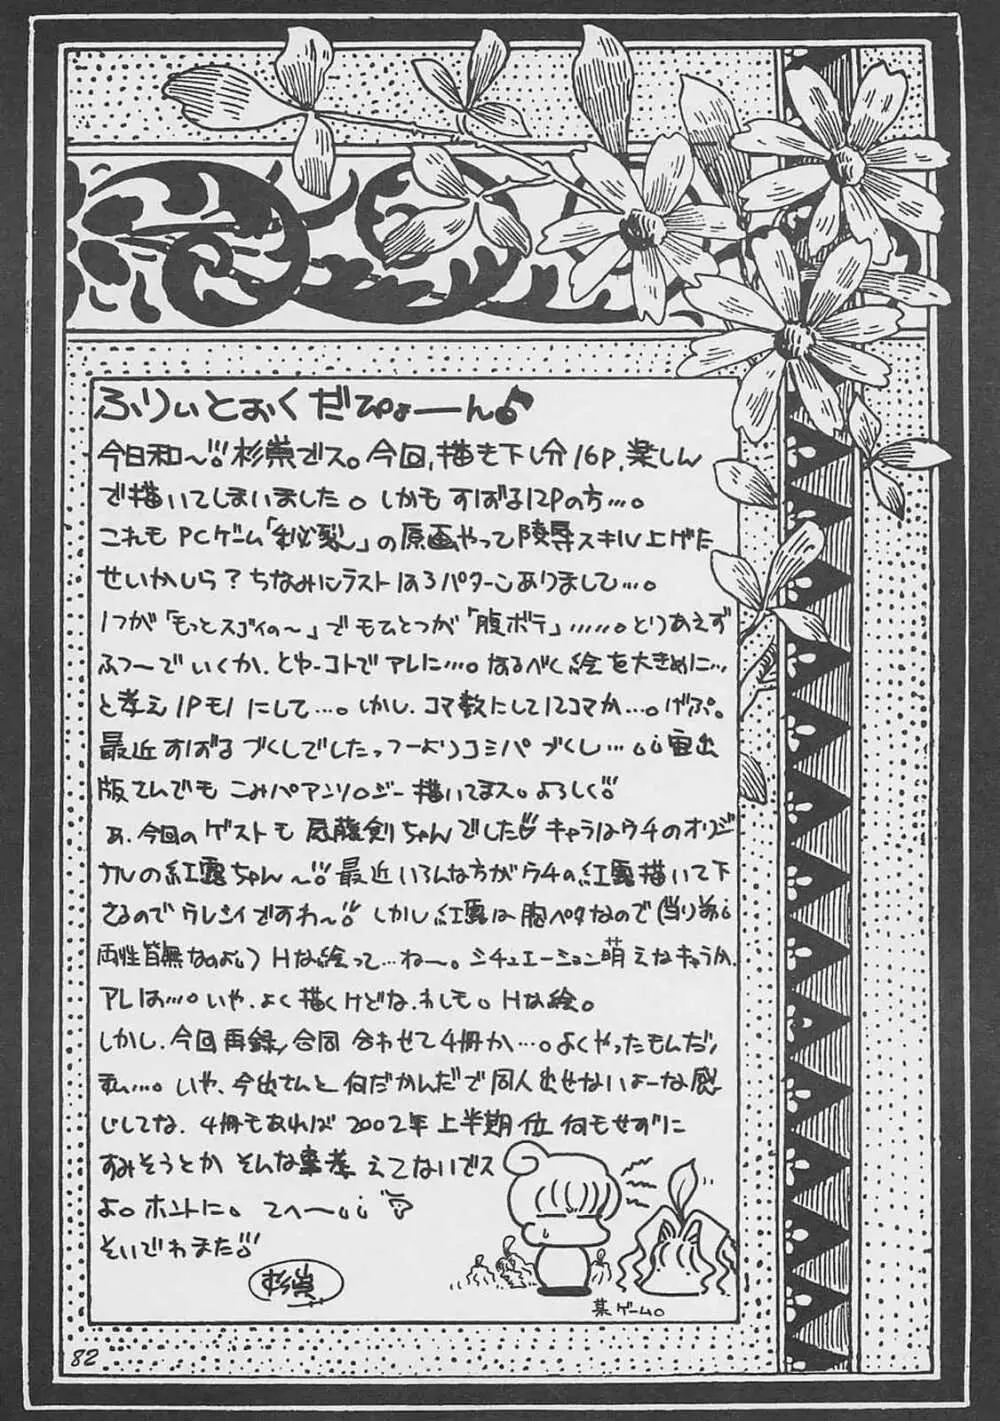 ふりぃとぉくだぴょーん♪
今日和〜!! 杉崇でス。今回、描き下し分16P、楽しん
で描いてしまいました。しかもすばる12Pの方…。
これもPCゲーム「秘裂」の原画やって陵辱スキル上げた
せいかしら？ちなみにラストは3パターンありまして…。
1つが「もっとスゴイの〜」でもひとつが「腹ボテ」……。とりあえず
ふつーでいくか、とゆーコトでアレに…。なるべく絵を大きめに…
と考え1Pモ1にして…。しかし、コマ数にして12コマか…。げぷ。
最近すばるづくしでしたっつーよりコミパづくし…
版さんでもこみパアンソロジー描いてまス。よろしく!!
あ、今回のゲストも 藤剣ちゃんでした キャラはウチのオリジ
ナルの紅露ちゃん〜!! 最近いろんな方がウチの紅露描いて下
さるのでウレシイですわ〜!! しかし紅露は胸ペタなので(当り前
両性皆無なのよ) Hな絵って…ね〜。シチュエーション萌えなキャラか、
アレは…。いや、よく描くけどな、わしも。Hな絵。
しかし、今回再録/合同合わせて4冊か…。よくやったもんだ/
私…。いや、今出さんと何だかんだで同人出せないよーな感
じしてな、4冊もあれば2002年上半期位何もせずに
すみそうとかそんな事考えてないでス
よ。ホントに。てへ〜
そいでわまた!!
杉崇
某ゲーム。
82